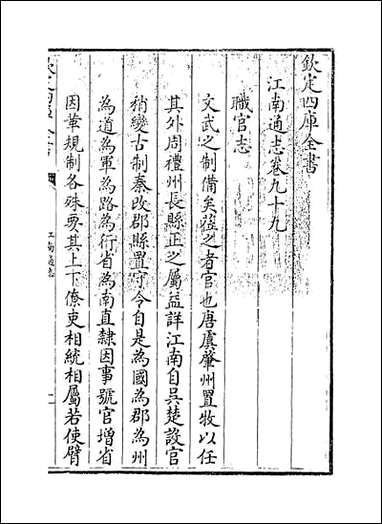 欽定四庫全書
江南通志卷九十九
職官志
文武之制備矣莅之者官也唐虞肇州置牧以任
其外周禮州長縣正之屬益詳江南自吳楚設官
稍變古制秦改郡縣置守令自是為國為郡為州
為道為軍為路為行省為南直隸因事號官增省
因革規制各殊要其上下僚吏相統相屬若使臂
江南通志